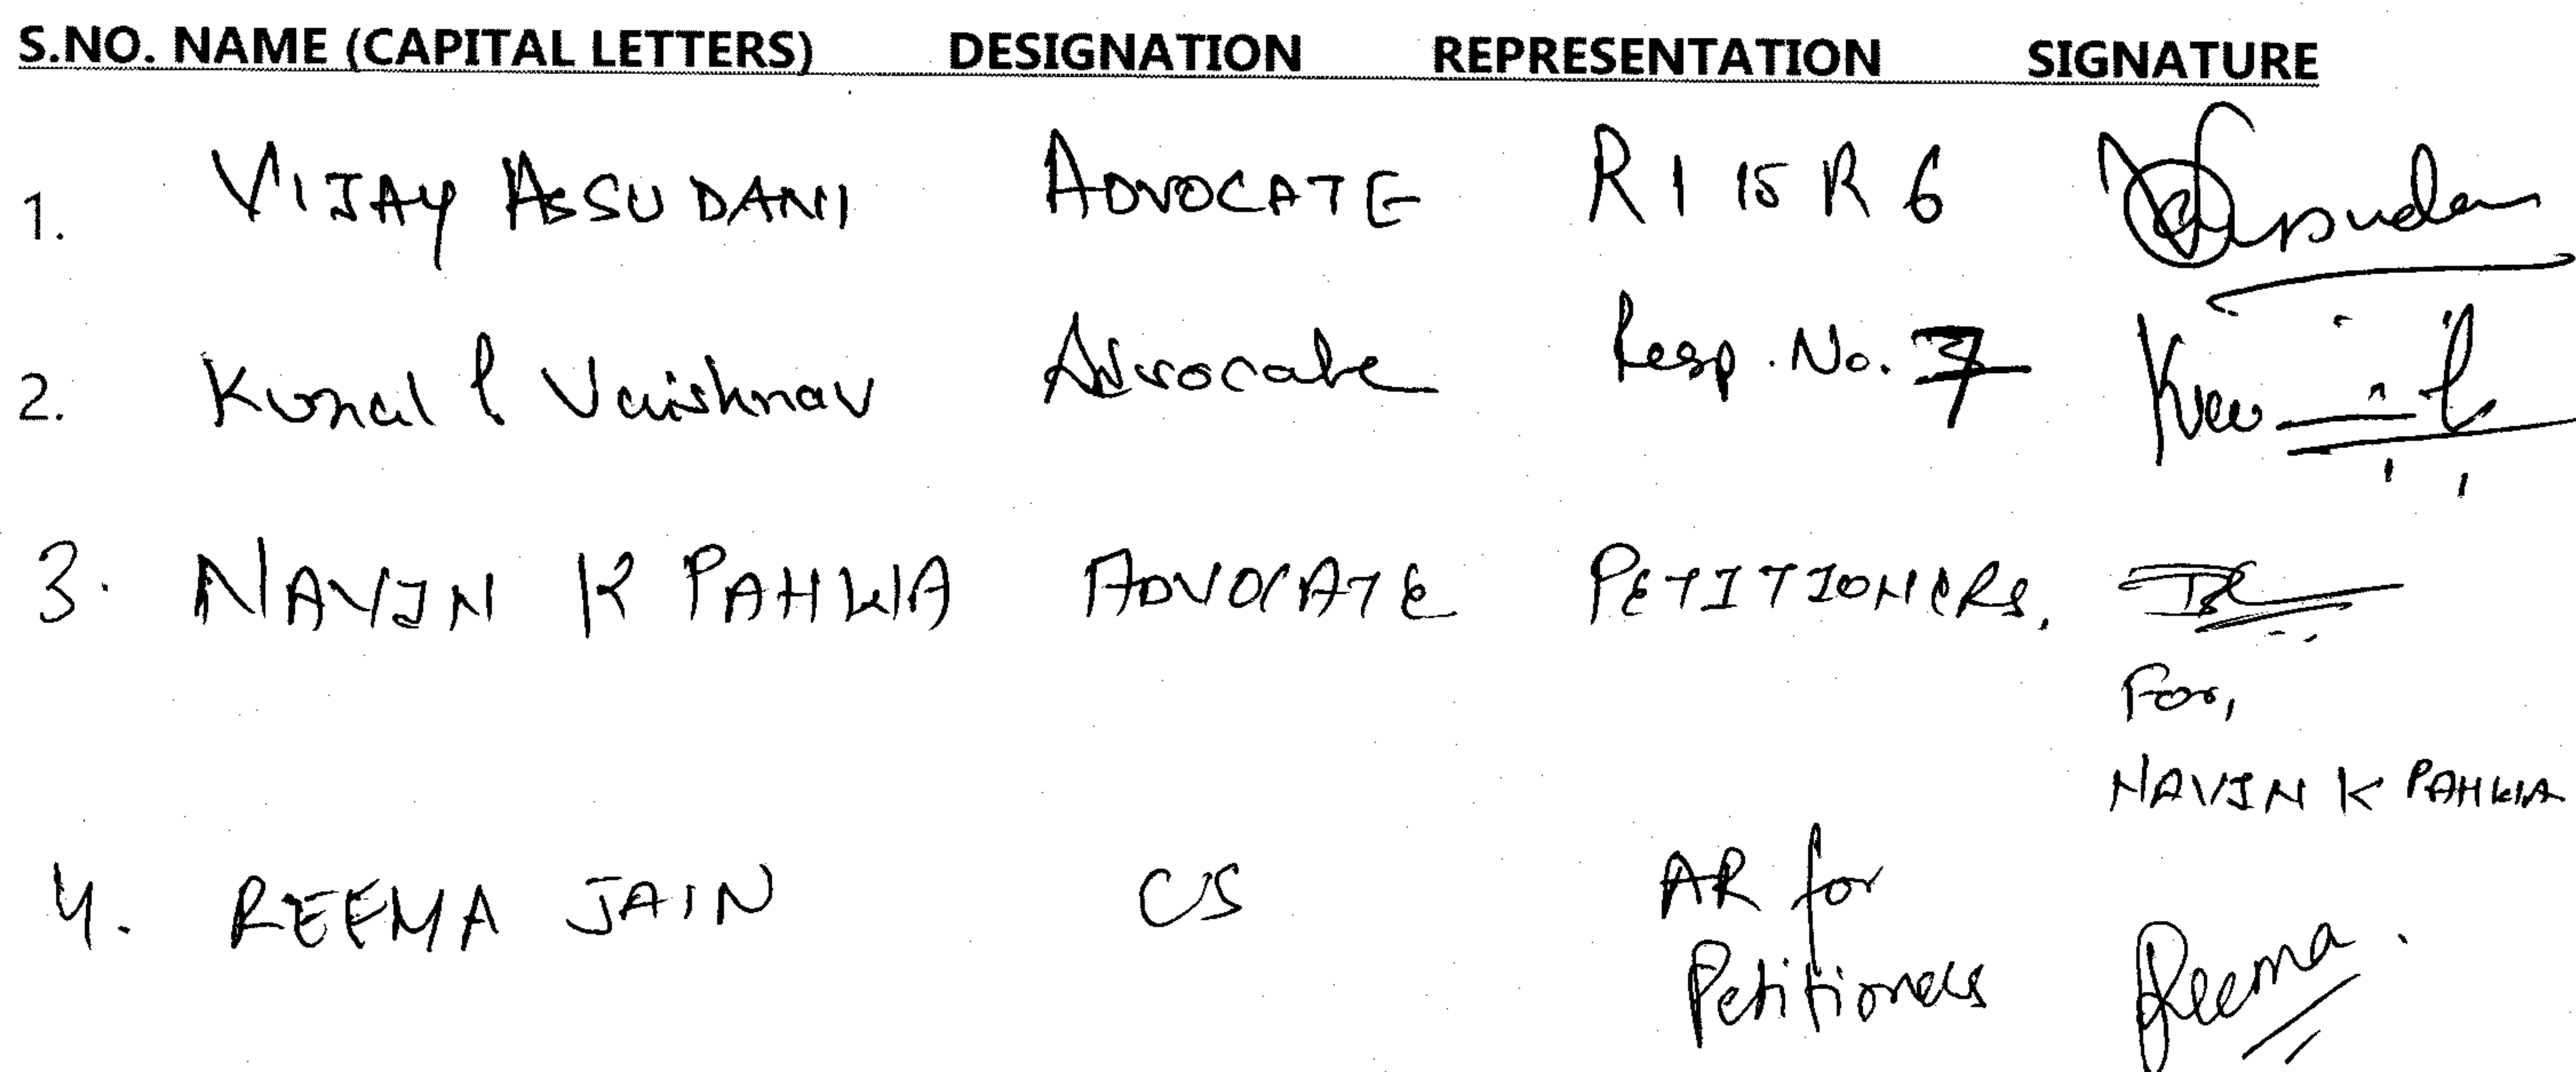 S.NO. NAME (CAPITAL LETTERS) DESIGNATION REPRESENTATION SIGNATURE
1. VIJAY ASSUDANI ADVOCATE R 1 to R 6
2. Kunal P Vaishnav Advocate Resp. No. 7
3. NAVIN K PAHWA ADVOCATE PETITIONERS.
For,
NAVIN K PAHWA
4. REEMA JAIN CS AR for
Petitioners Reema.